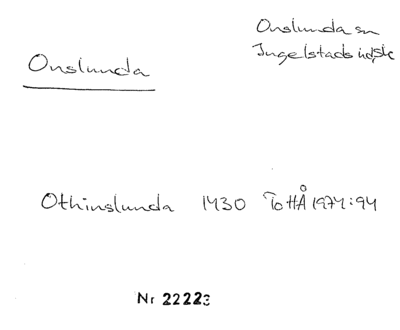 Onslunda sn
Ingelstads hd, Sk
Onslunda
Othinslunda 1430 ToHÅ 1974:94
Nr 22223